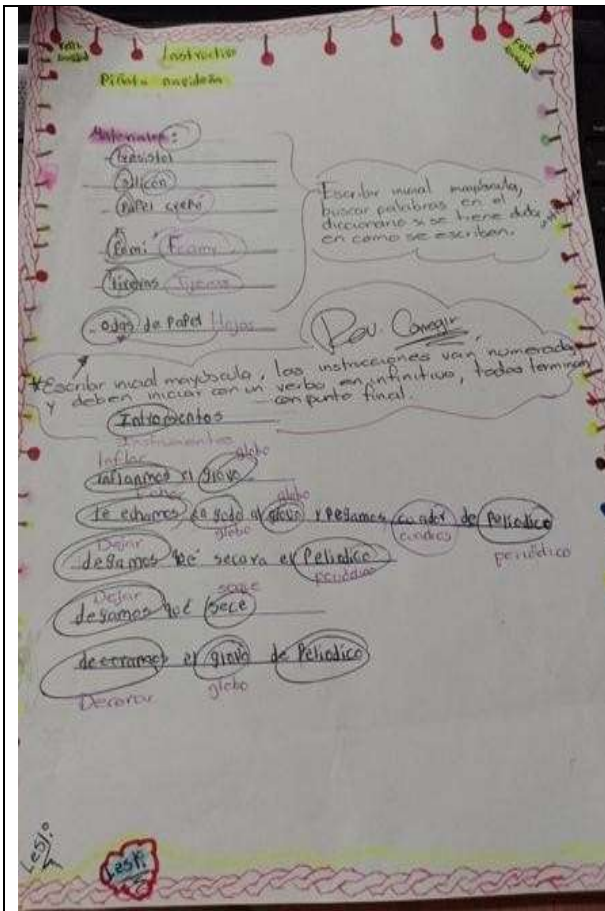 Feliz
Navidad
Instructivo
Feliz
Navidad
Piñata navideña
Materiales:
- Resistol
- Silicón
- Papel crepé
- Fomi Foamy
- tijeras Tijeras
- ojas de Papel Hojas
Escribir inicial mayúscula,
buscar palabras en el
diccionario si se tiene duda
en como se escriben.
Rev. Corregir
*Escribir inicial mayúscula, las instrucciones van numeradas
y deben iniciar con un verbo en infinitivo, todas terminan
con punto final.
Instrumentos
Inflar globo
inflanmos el glovo
globo
le echamos glovo y pegamos de Peliodico
globo cuadros periódico
Dejar
degamos que el Peliodico
periódico
Dejar seque
degamos que sece
el glovo de Peliodico
Decorar globo
Lesli
Lesli